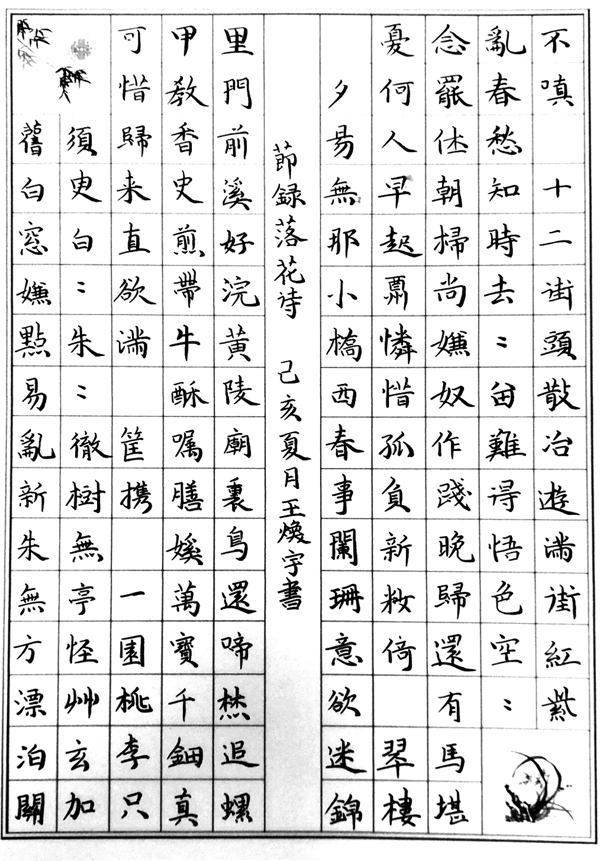 不嗔 十二街頭散冶遊滿街紅紫
亂春愁知時去〻留難得悟色空〻
念罷休朝掃尚嫌奴作踐晚歸還有馬堪
憂何人早起憐惜孤負新妝倚翠樓
夕昜無那小橋西春事闌珊意欲迷錦
節録落花詩 己亥夏月王焕宇書
里門前溪好浣黃陵廟裏鳥還啼焚追螺
甲教香史煎帶牛酥囑膳媛萬寶千鈿真
可惜歸来直欲滿筐攜 一園桃李只
須臾白〻朱〻徹樹無亭怪艸玄加
舊白窓嫌點易亂新朱無方漂泊關